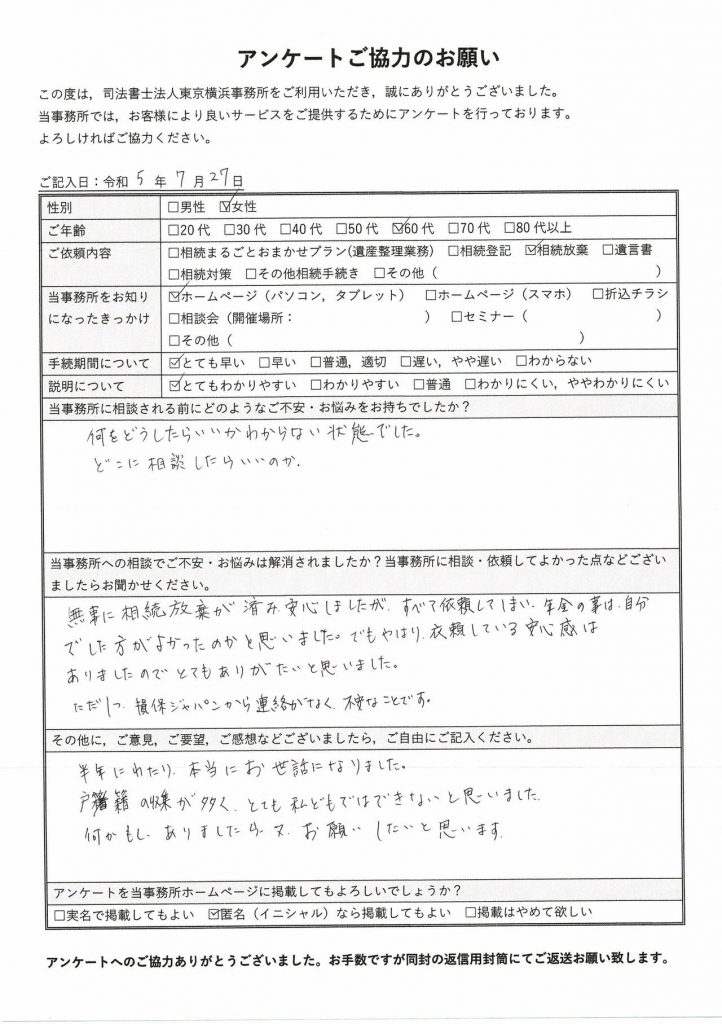 アンケートご協力のお願い
この度は，司法書士法人東京横浜事務所をご利用いただき，誠にありがとうございました。
当事務所では，お客様により良いサービスをご提供するためにアンケートを行っております。
よろしければご協力ください。
ご記入日：令和 5 年 7 月 27日
性別 □男性 ☑女性
ご年齢 □20代 □30代 □40代 □50代 ☑60代 □70代 □80代以上
ご依頼内容 □相続まるごとおまかせプラン(遺産整理業務) □相続登記 ☑相続放棄 □遺言書
□相続対策 □その他相続手続き □その他（ ）
当事務所をお知り ☑ホームページ（パソコン，タブレット） □ホームページ（スマホ） □折込チラシ
になったきっかけ □相談会（開催場所： ） □セミナー（ ）
□その他（ ）
手続期間について ☑とても早い □早い □普通，適切 □遅い，やや遅い □わからない
説明について ☑とてもわかりやすい □わかりやすい □普通 □わかりにくい，ややわかりにくい
当事務所に相談される前にどのようなご不安・お悩みをお持ちでしたか？
何をどうしたらいいかわからない状態でした。
どこに相談したらいいのか.
当事務所への相談でご不安・お悩みは解消されましたか？当事務所に相談・依頼してよかった点などござい
ましたらお聞かせください。
無事に相続放棄が済み安心しましたが、すべて依頼してしまい、年金の事は、自分
でした方がよかったのかと思いました。でもやはり、依頼している安心感は
ありましたのでとてもありがたいと思いました。
ただ1つ、損保ジャパンから連絡がなく、不安なことです。
その他に，ご意見，ご要望，ご感想などございましたら，ご自由にご記入ください。
半年にわたり、本当にお世話になりました。
戸籍の収集が多く、とても私どもではできないと思いました.
何かもし、ありましたら、又、お願いしたいと思います.
アンケートを当事務所ホームページに掲載してもよろしいでしょうか？
□実名で掲載してもよい ☑匿名（イニシャル）なら掲載してもよい □掲載はやめて欲しい
アンケートへのご協力ありがとうございました。お手数ですが同封の返信用封筒にてご返送お願い致します。